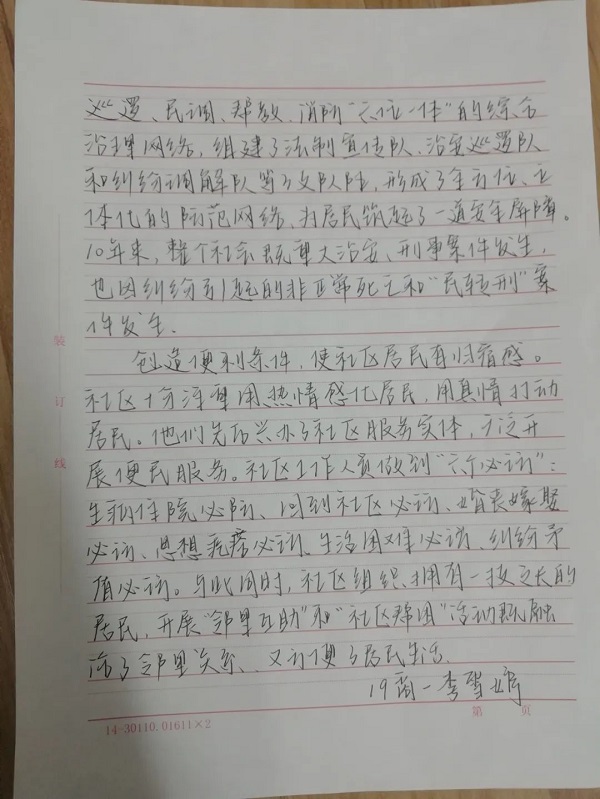 巡逻、民调、帮教、消防“六位一体”的综合
治理网络，组建了法制宣传队、治安巡逻队
和纠纷调解队等3支队伍，形成了全方位、立
体化的防范网络，为居民筑起了一道安全屏障。
10年来，整个社会既重大治安、刑事案件发生，
也因纠纷引起的非正常死亡和“民转刑”案
件发生。
创造便利条件，使社区居民有归宿感。
社区十分注重用热情感化居民，用真情打动
居民。他们先后兴办了社区服务实体，广泛开
展便民服务。社区工作人员做到“六个必访”：
生病住院必访、回到社区必访、婚丧嫁娶
必访、思想疙瘩必访、生活困难必访、纠纷矛
盾必访。与此同时，社区组织拥有一技之长的
居民，开展“邻里互助”和“社区帮困”活动既融
洽了邻里关系、又方便了居民生活。
19商一李
装
订
线
第 页
14-30110.01611×2